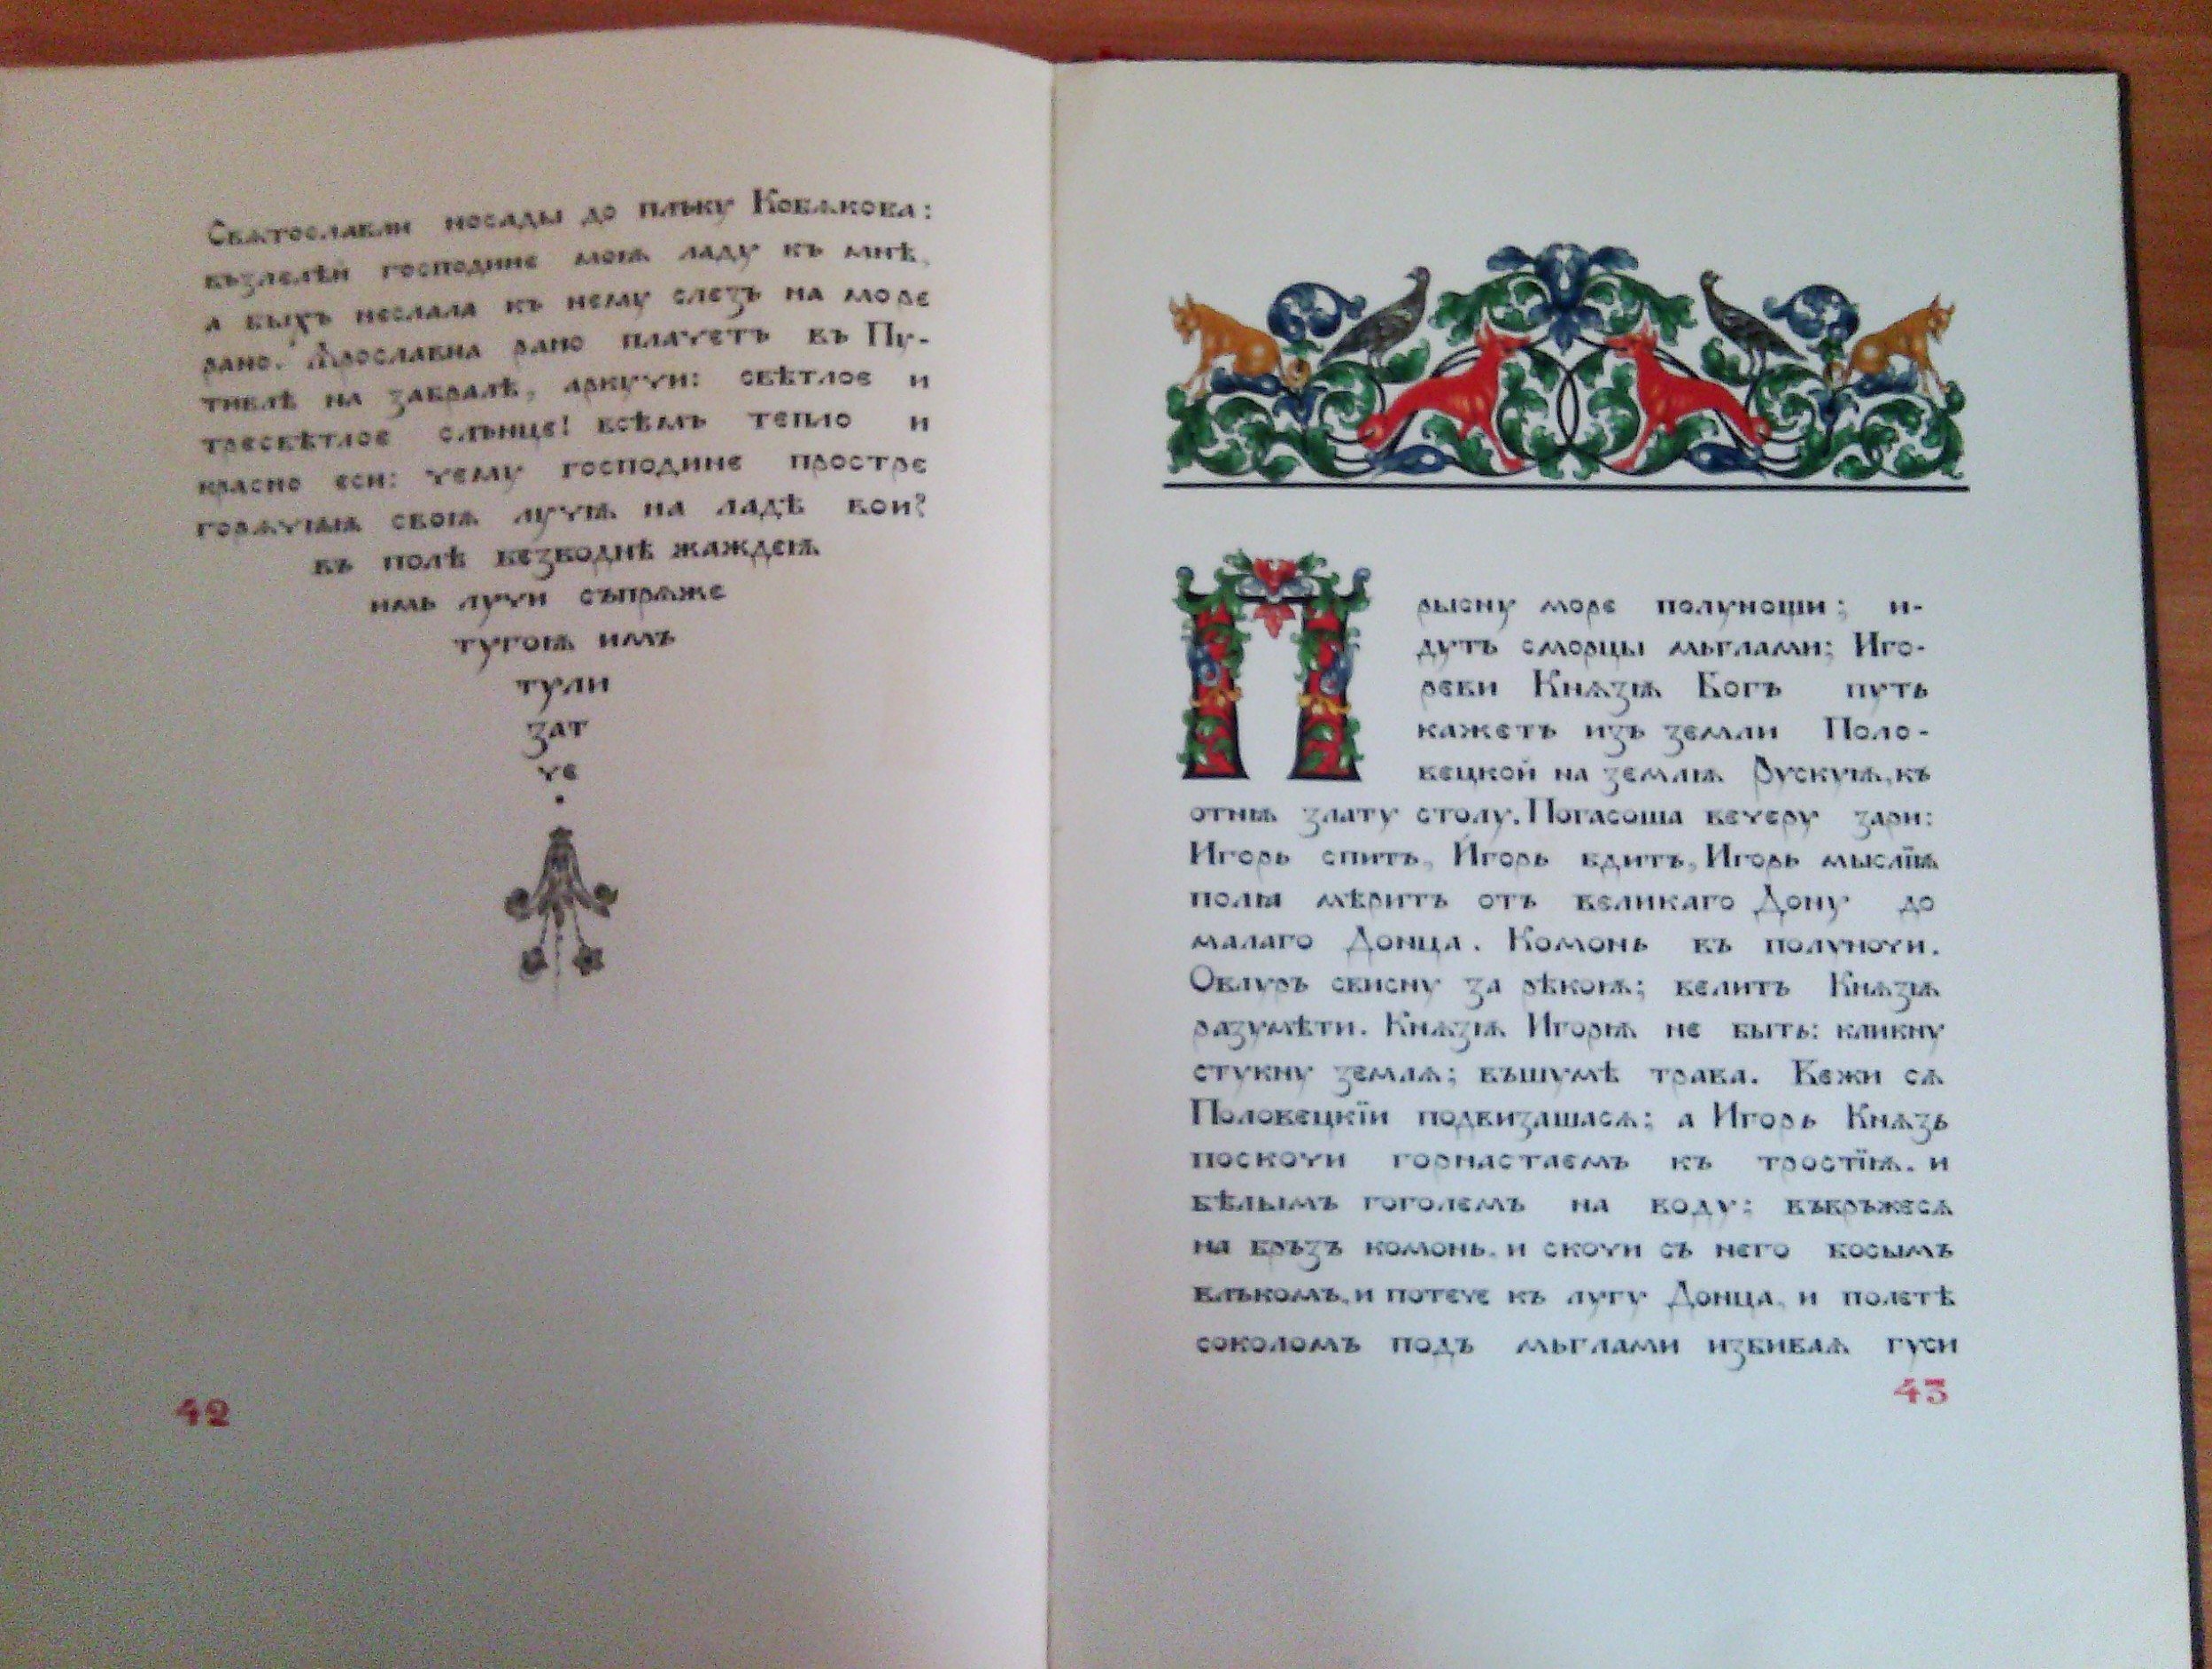 Свѧтославли носады до плъку Кобѧкова:
възлелѣй господине моѭ ладу къ мнѣ,
а быхъ неслала къ нему слезъ на море
рано. Ꙗрославна рано плачетъ въ Пу-
тивлѣ на забралѣ, аркучи: свѣтлое и
тресвѣтлое слънце! всѣмъ тепло и
красно еси: чему господине простре
горѧчюю своѭ лучѭ на ладѣ вои?
въ полѣ безводнѣ жаждеѭ
имь лучи съпрѧже
тугоѭ имъ
тули
зат
че
42
Прысну море полунощи; и-
дутъ сморцы мьглами; Иго-
реви Кнѧзѭ Богъ путь
кажетъ изъ земли Поло-
вецкой на землѭ Рускуѭ, къ
отнѭ злату столу. Погасоша вечеру зари:
Игорь спитъ, Игорь бдитъ, Игорь мыслїѭ
полꙗ мѣритъ отъ великаго Дону до
малаго Донца. Комонь въ полуночи.
Овлуръ свисну за рѣкоѭ; велитъ Кнѧзѭ
разумѣти. Кнѧзѭ Игорѭ не быть: кликну
стукну землѧ; въшумѣ трава. Вежи сѧ
Половецкїи подвизашасѧ; а Игорь Кнѧзь
поскочи горнастаемъ къ тростїѭ, и
бѣлымъ гоголемъ на воду; въвръжесѧ
на бръзъ комонь, и скочи съ него босымъ
влъкомъ, и потече къ лугу Донца, и полетѣ
соколомъ подъ мьглами избиваѧ гуси
43